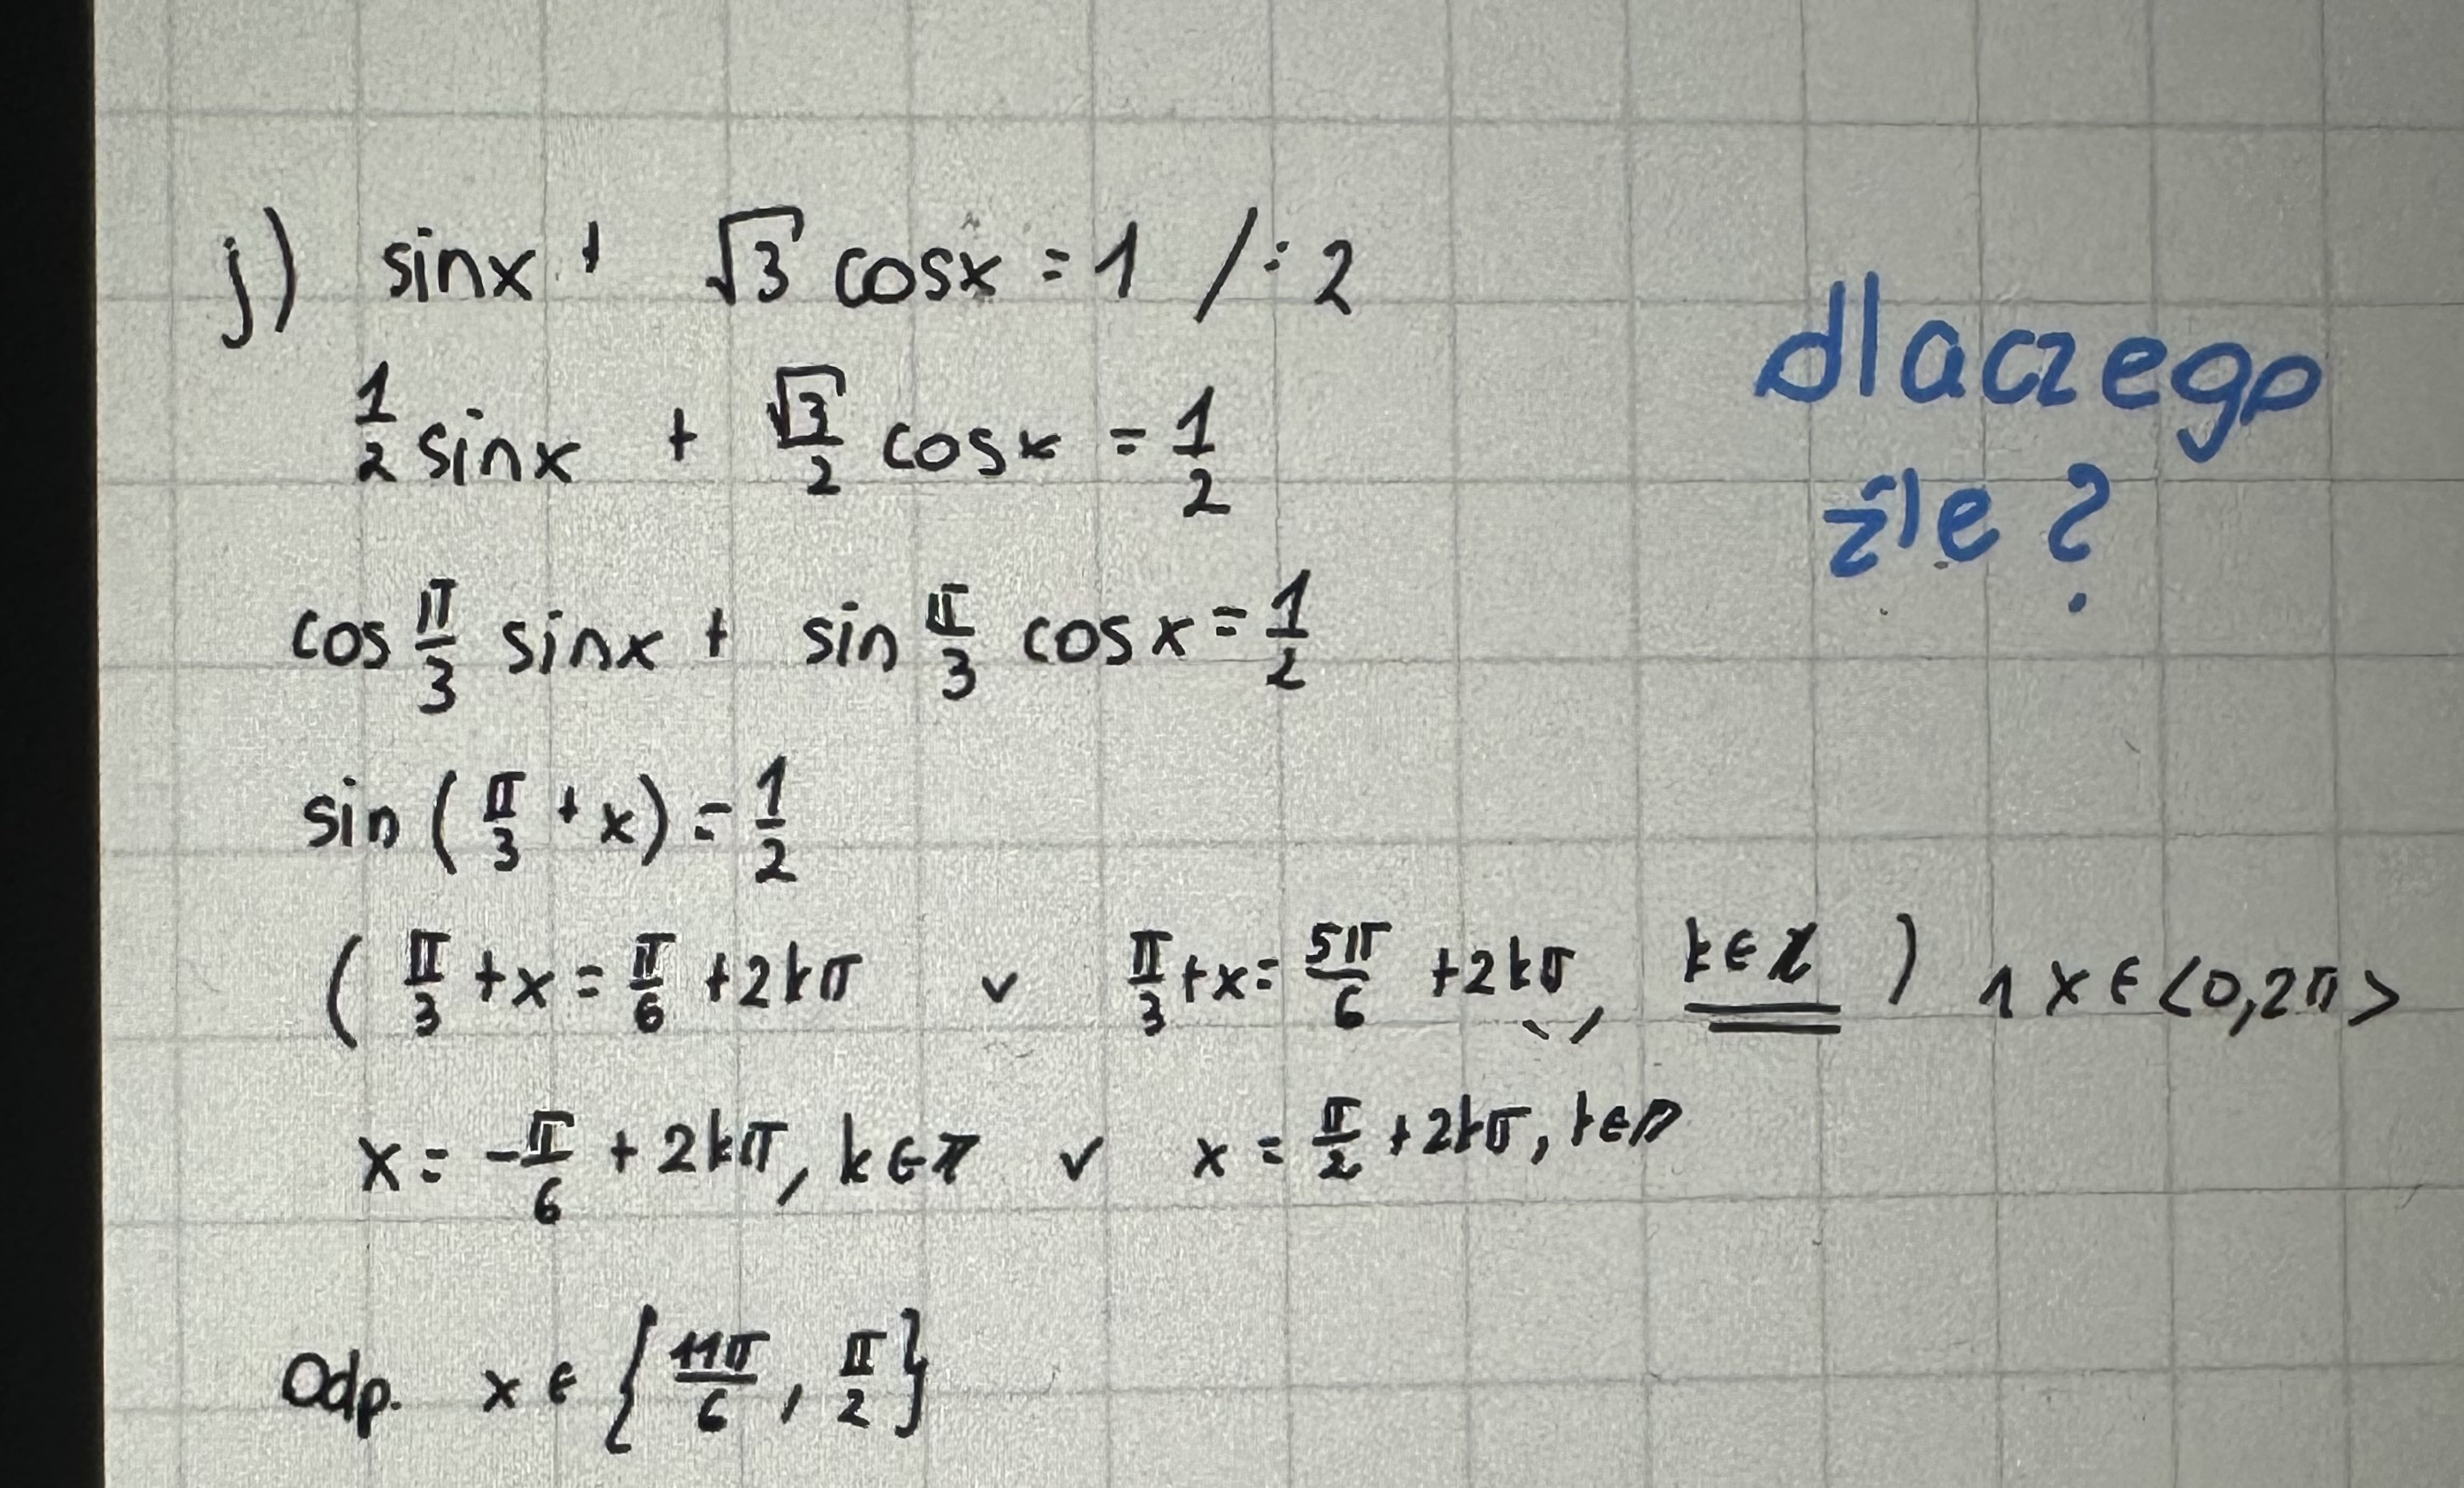 j) sinx + √3 cosx = 1 /:2
dlaczego
źle?
1/2 sinx + √3/2 cosx = 1/2
cos π/3 sinx + sin π/3 cosx = 1/2
sin (π/3 + x) = 1/2
( π/3 + x = π/6 + 2kπ ∨ π/3 + x = 5π/6 + 2kπ, k∈ℤ ) ∧ x∈<0,2π>
x = -π/6 + 2kπ, k∈ℤ ∨ x = π/2 + 2kπ, k∈ℤ
Odp. x∈{11π/6, π/2}